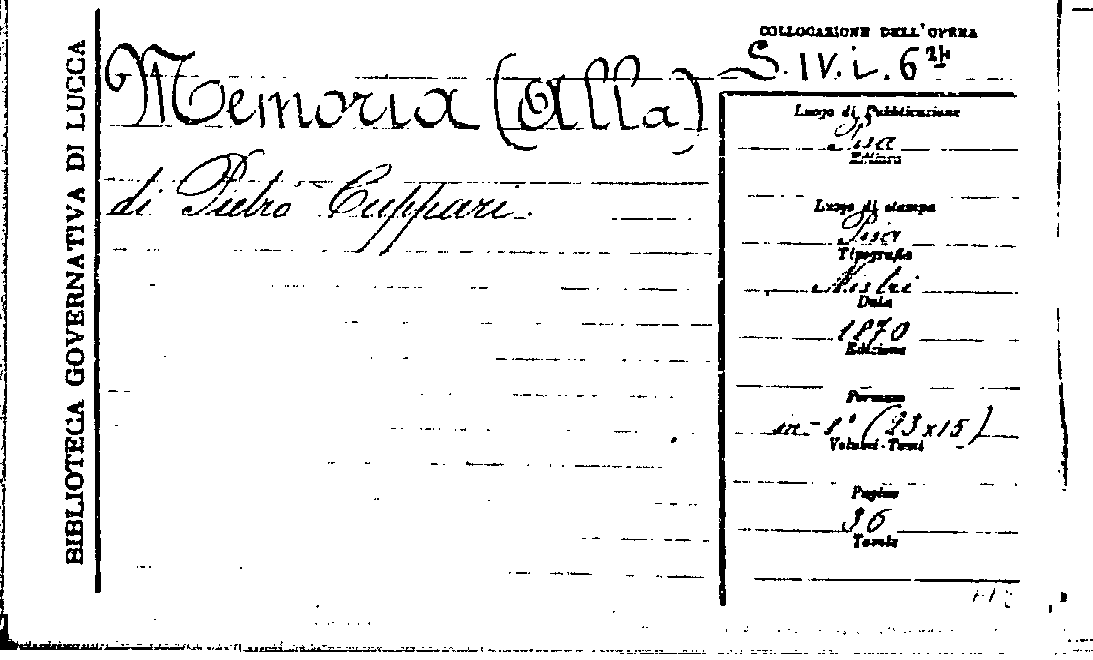 BIBLIOTECA GOVERNATIVA DI LUCCA
Memoria (Alla)
di Pietro Cuppari.
COLLOCAZIONE DELL'OPERA
S. IV. i. 6
Luogo di Pubblicazione
Pisa
Editore
Luogo di stampa
Pisa
Tipografia
Nistri
Data
1870
Edizione
Formato
in-8° (23x15)
Volumi-Tomi
Pagine
36
Tavole